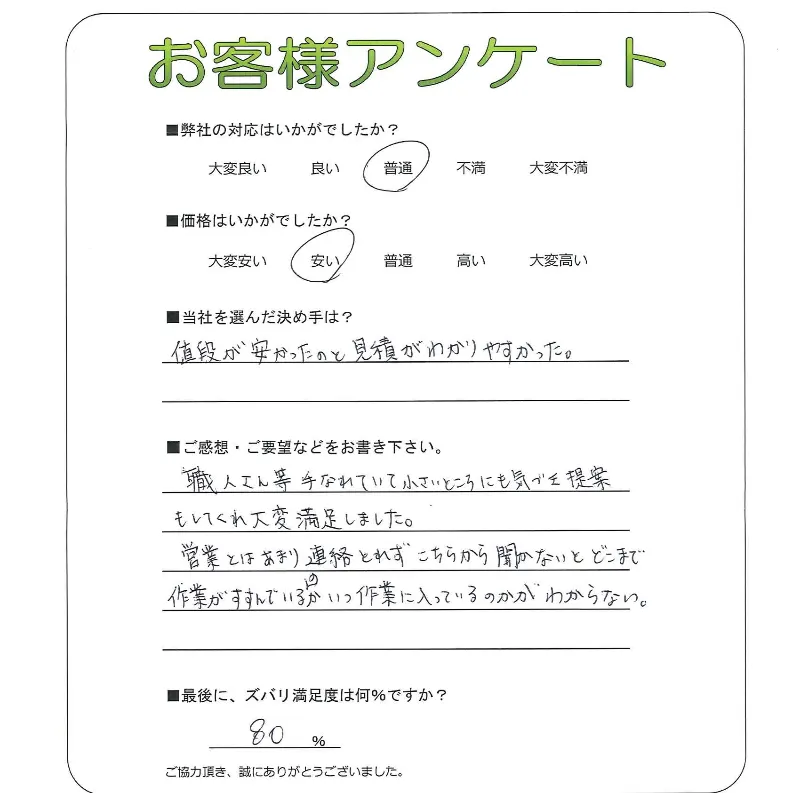 お客様アンケート
■弊社の対応はいかがでしたか？
大変良い 良い 普通 不満 大変不満
■価格はいかがでしたか？
大変安い 安い 普通 高い 大変高い
■当社を選んだ決め手は？
値段が安かったのと見積がわかりやすかった。
■ご感想・ご要望などをお書き下さい。
職人さん等手なれていて小さいところにも気づき提案
もしてくれ大変満足しました。
営業とはあまり連絡とれずこちらから聞かないとどこまで
作業がすすんでいるのかいつ作業に入っているのかがわからない。
■最後に、ズバリ満足度は何%ですか？
80 %
ご協力頂き、誠にありがとうございました。